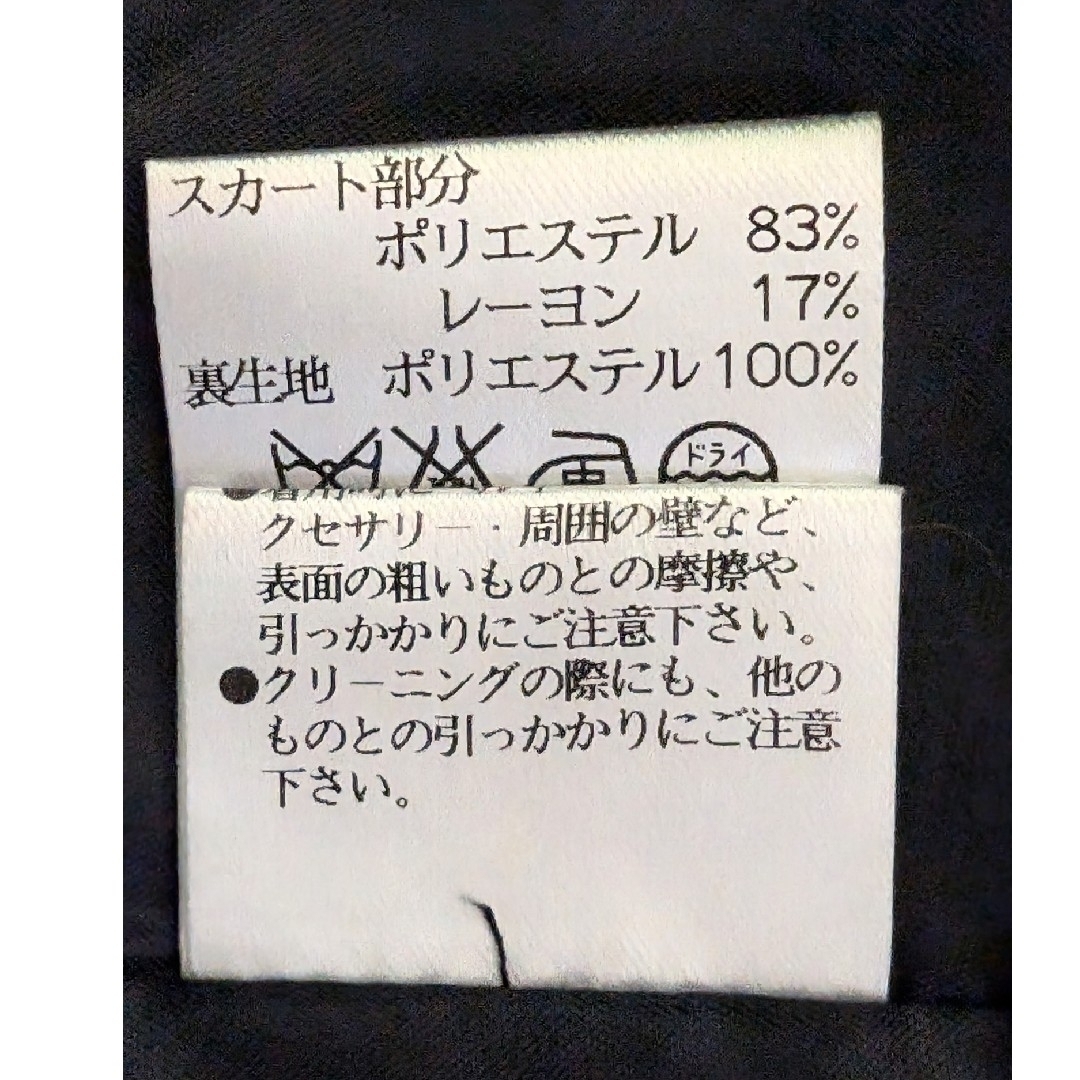 スカート部分
ポリエステル 83%
レーヨン 17%
裏生地 ポリエステル 100%
ドライ
クセサリー・周囲の壁など、
表面の粗いものとの摩擦や、
引っかかりにご注意下さい。
●クリーニングの際にも、他の
ものとの引っかかりにご注意
下さい。